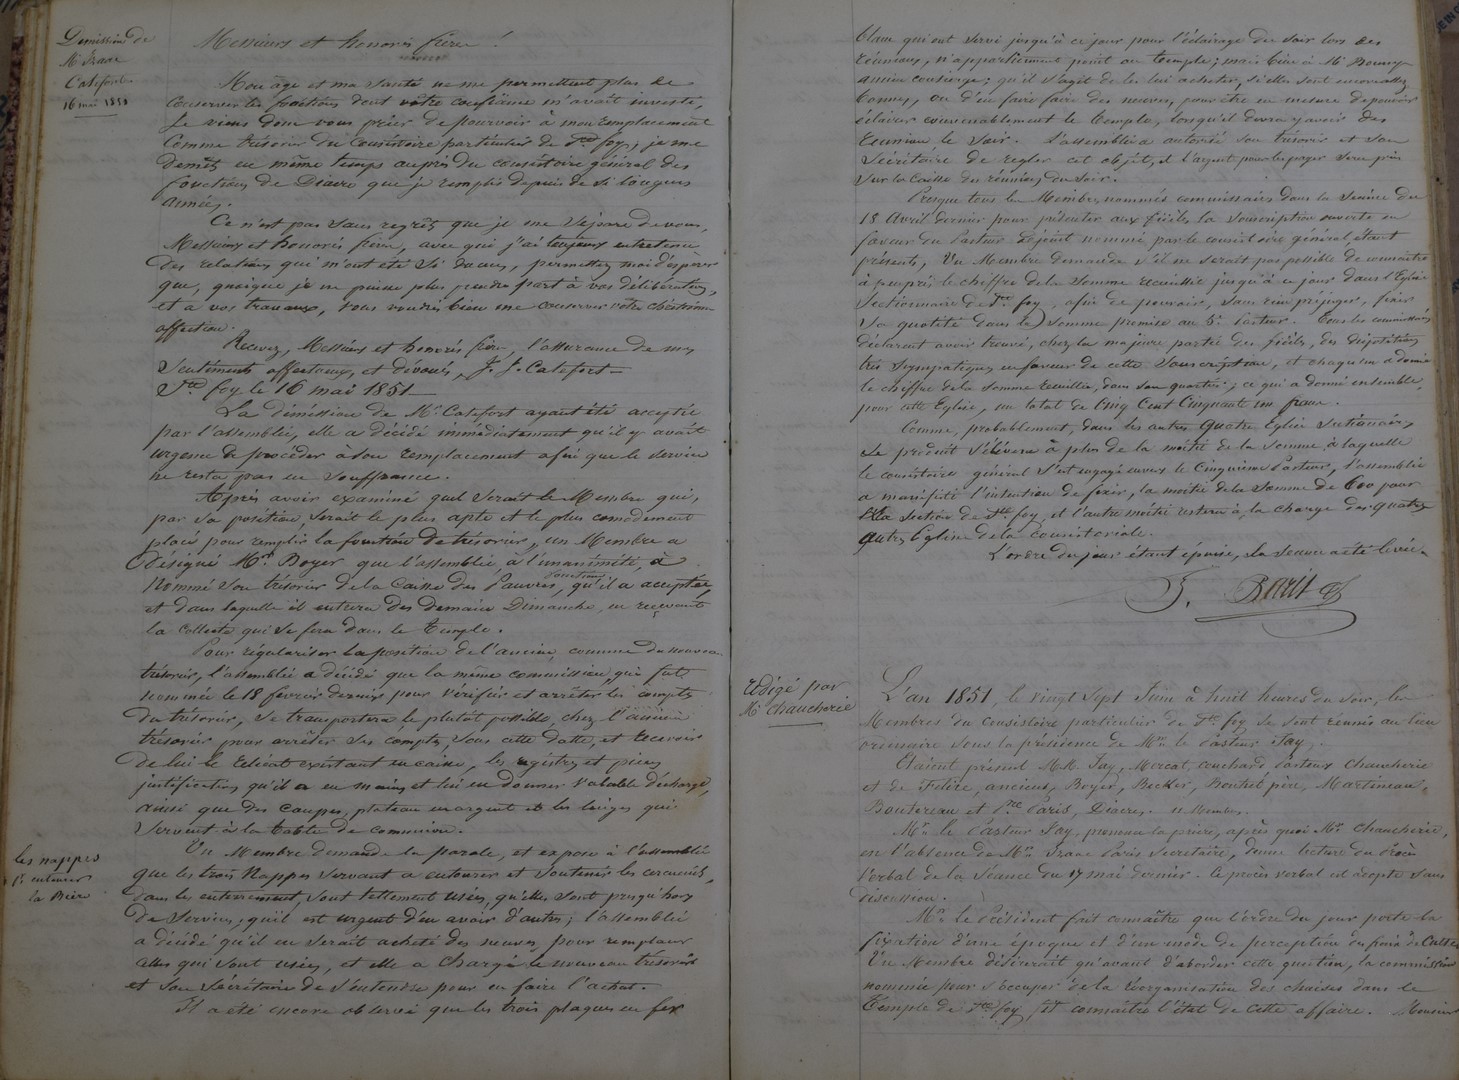 Démission de
Mr Isaac
Catefort
16 mai 1851
Messieurs et honorés frères !
Mon âge et ma santé ne me permettent plus de
conserver les fonctions dont votre confiance m'avait investi,
Je viens donc vous prier de pourvoir à mon remplacement
Comme trésorier du Consistoire particulier de Ste foy ; je me
demets en même temps auprès du consistoire général des
fonctions de Diacre que je remplis depuis de si longues
années.
Ce n'est pas sans regrêt que je me sépare de vous,
Messieurs et honorés frères, avec qui j'ai toujours entretenu
des relations qui m'ont été si douces, permettez moi d'espérer
que, quoique je ne puisse plus prendre part à vos délibérations,
et à vos travaux, vous voudrez bien me conserver votre chrétienne
affection.
Recevez, Messieurs et honorés frères, l'assurance de mes
Sentiments affectueux, et dévoués, J. J. Catefort
Ste foy le 16 mai 1851
La démission de Mr Catefort ayant été acceptée
par l'assemblée, elle a décidé immédiatement qu'il y avait
urgence de procéder à son remplacement afin que le service
ne resta pas en souffrance.
Après avoir examiné quel serait le Membre qui,
par sa position, serait le plus apte et le plus comodement
placé pour remplir la fonction de trésorier, un Membre a
désigné Mr Boyer que l'assemblée, à l'unanimité, a
nommé son trésorier de la Caisse des Pauvres, fonctions qu'il a acceptées,
et dans laquelle il entrera dès demain Dimanche, en reçevant
la collecte qui se fera dans le Temple.
Pour régulariser la position de l'ancien, comme du nouveau
trésorier, l'assemblée a décidé que la même commission, qui fut
nommée le 18 fevrier dernier pour vérifier et arrêter les comptes
du trésorier, se transportera, le plutôt possible, chez l'ancien
trésorier pour arrêter ses comptes, sous cette datte, et recevoir
de lui le reliquat existant en caisse, les registres et pièces
justificatives qu'il a en mains et lui en donner valable décharge,
ainsi que des coupes, plateau en argent et les linges qui
servent à la table de communion.
les nappes
pr entourer
la Bière
Un Membre demande la parole, et expose à l'assemblée
que les trois Nappes servant a entourer et soutenir les cercueils,
dans les enterrement, sont tellement usées, qu'elles sont presqu'hors
de service, qu'il est urgent d'en avoir d'autres ; l'assemblée
a décidé qu'il en serait acheté des neuves pour remplacer
celles qui sont usées, et elle a chargé le nouveau trésorier
et son secrétaire de s'entendre pour en faire l'achat.
Il a été encore observé que les trois plaques en fer
blanc qui ont servi jusqu'à ce jour pour l'éclairage du soir lors des
réunions, n'appartiennent point au temple ; mais bien à Mr
ancien concierge ; qu'il s'agit de les lui acheter, si elles sont encore assez
bonnes, ou d'en faire faire des neuves, pour être en mesure de pouvoir
éclairer convenablement le Temple, lorsqu'il devra y avoir des
réunions le soir. L'assemblée a autorisé son trésorier et son
Secrétaire de regler cet objet, et l'argent pour les payer sera pris
sur la Caisse des réunions du soir.
Presque tous les Membres nommés commissaires dans la séance du
18 Avril dernier pour présenter aux fidèles la souscription ouverte en
faveur du Pasteur adjoint nommé par le consistoire général étant
présents, Un Membre demande s'il ne serait pas possible de connaître
à peu près le chiffre de la somme recueillie jusqu'à ce jour dans l'Eglise
Sectionnaire de Ste foy, afin de pouvoir, sans rien préjuger, fixer
sa quotité dans la somme promise au 5e Pasteur. Tous les commissaires
déclarent avoir trouvé, chez la majeure partie des fidèles, des dispositions
très sympatiques en faveur de cette souscription, et chaqu'un a donné
le chiffre de la somme recueillie, dans son quartier ; ce qui a donné ensemble,
pour cette Eglise, un total de Cinq Cent Cinquante un francs.
Comme, probablement, dans les autres quatre Eglises sectionnaires
le produit s'élèvera à plus de la moitié de la somme à laquelle
le consistoire général s'est engagé envers le Cinquième Pasteur, l'assemblée
a manifesté l'intention de fixer, la moitié de la somme de 600 pour
la section de Ste foy, et l'autre moitié restera à la charge des quatre
autres Eglises de la consistoriale.
L'ordre du jour étant épuisé, la séance a été levée.
Paris
Rédigé par
Mr Chaucherie
L'an 1851, le vingt sept Juin à huit heures du soir, les
Membres du consistoire particulier de Ste foy se sont réunis au lieu
ordinaire sous la présidence de Mr le Pasteur Jay.
Etaient présent M.M. Jay, Mercat, couchard Pasteurs Chaucherie
et de Filire, anciens, Boyer, Becker, Bouhet père, Martineau,
Boutereau et Pre Paris, Diacres. 11 Membres.
Mr le Pasteur Jay, prononce la prière, après quoi Mr Chaucherie,
en l'absence de Mr Isaac Paris Secretaire, donne lecture du Procès
Verbal de la séance du 17 mai dernier. Ce procès verbal est adopté sans
discussion.
Mr le Président fait connaître que l'ordre du jour porte la
fixation d'une époque et d'un mode de perception du frais de Culte.
Un Membre désirerait qu'avant d'aborder cette question, la commission
nommée pour s'occuper de la Réorganisation des chaises dans le
Temple de Ste foy, fit connaître l'état de cette affaire. Monsieur